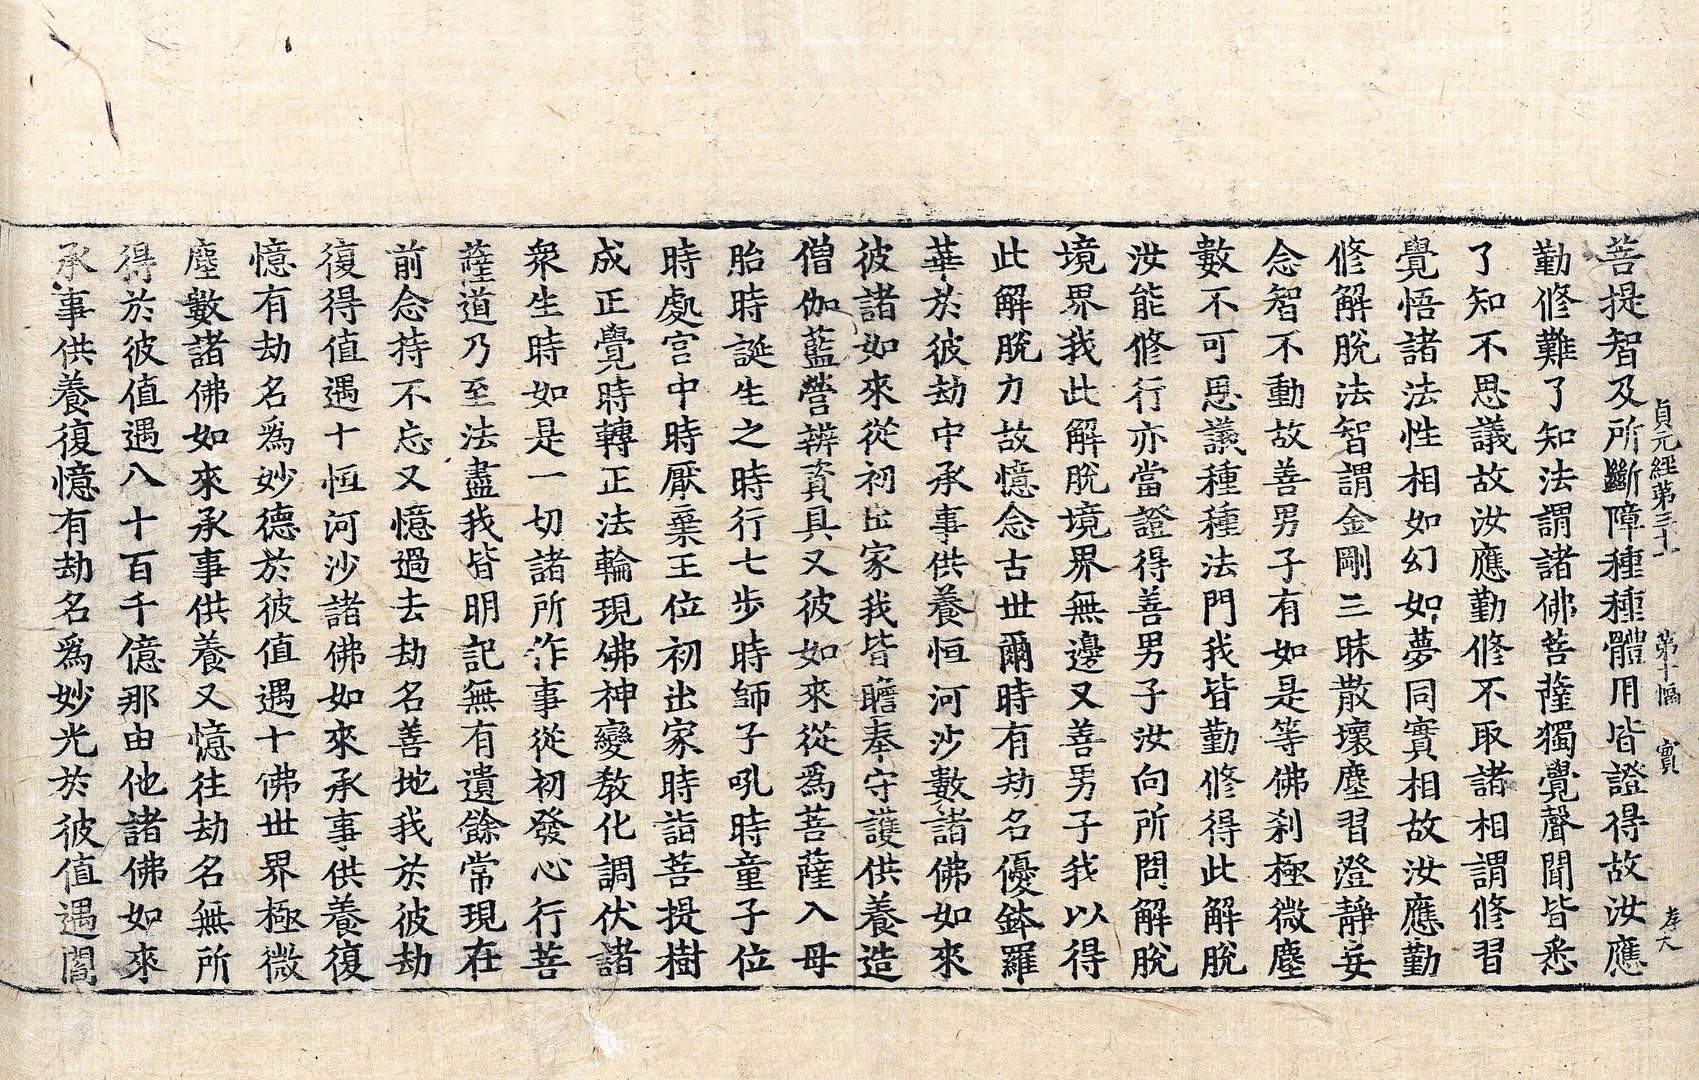 貞元經第三十 第十幅 實 孝大
菩提智及所斷障種種體用皆證得故汝應
勤修難了知法謂諸佛菩薩獨覺聲聞皆悉
了知不思議故汝應勤修不取諸相謂修習
覺悟諸法性相如幻如夢同實相故汝應勤
修解脫法智謂金剛三昧散壞塵習澄靜妄
念智不動故善男子有如是等佛刹極微塵
數不可思議種種法門我皆勤修得此解脫
汝能修行亦當證得善男子汝向所問解脫
境界我此解脫境界無邊又善男子我以得
此解脫力故憶念古世爾時有劫名優鉢羅
華於彼劫中承事供養恒河沙數諸佛如來
彼諸如來從初出家我皆瞻奉守護供養造
僧伽藍營辨資具又彼如來從爲菩薩入母
胎時誕生之時行七步時師子吼時童子位
時處宮中時厭棄王位初出家時詣菩提樹
成正覺時轉正法輪現佛神變教化調伏諸
衆生時如是一切諸所作事從初發心行菩
薩道乃至法盡我皆明記無有遺餘常現在
前念持不忘又憶過去劫名善地我於彼劫
復得值遇十恒河沙諸佛如來承事供養復
憶有劫名爲妙德於彼值遇十佛世界極微
塵數諸佛如來承事供養又憶往劫名無所
得於彼值遇八十百千億那由他諸佛如來
承事供養復憶有劫名爲妙光於彼值遇閻